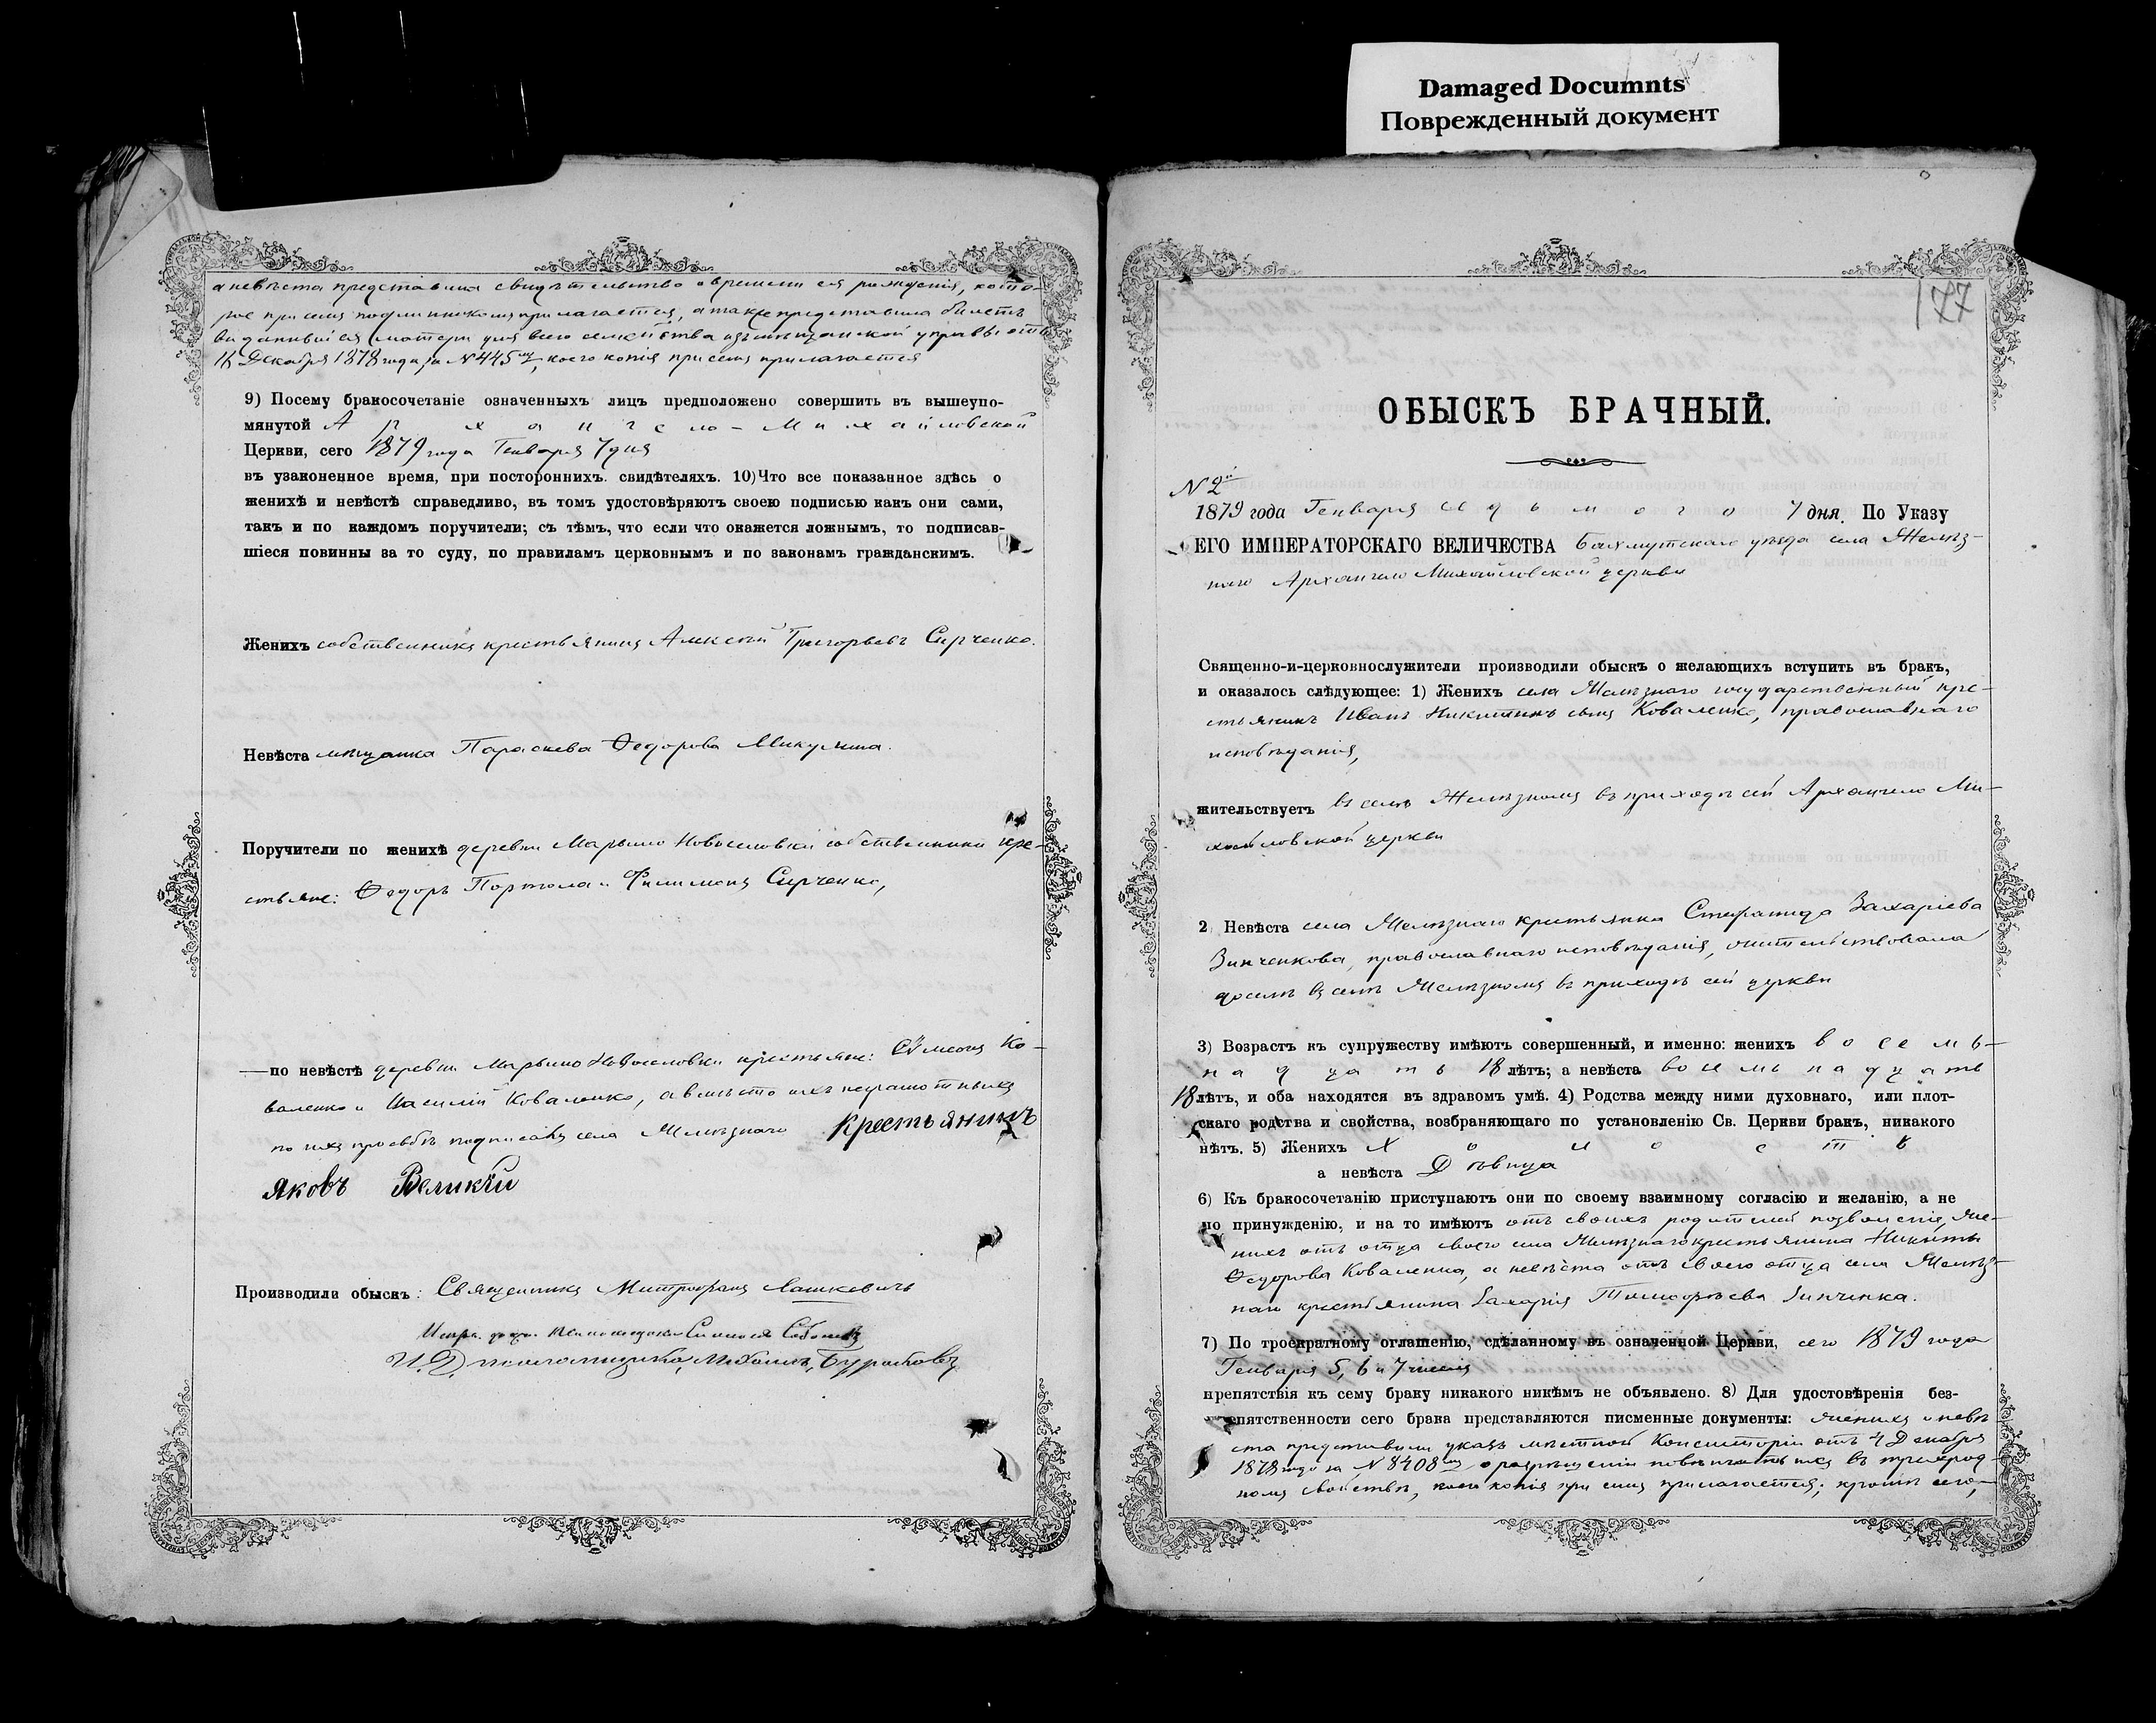 Damaged Documnts
Поврежденный документ
а невѣста представила свидѣтельство о времени ея рожденія, кото-
рое при семъ подлинникомъ прилагается, а также представила билетъ
выданный ея матери для всего семейства изъ мѣщанской управы отъ
16 Декабря 1878 года за № 445мъ, коего копія при семъ прилагается
9) Посему бракосочетаніе означенныхъ лицъ предположено совершить въ вышеупо-
мянутой Архангело-Михайловской
Церкви, сего 1879 года Генваря 7 дня
въ узаконенное время, при постороннихъ. свидѣтеляхъ. 10) Что все показанное здѣсь о
женихѣ и невѣстѣ справедливо, въ томъ удостовѣряютъ своею подписью какъ они сами,
такъ и по каждомъ поручители; съ тѣмъ, что если что окажется ложнымъ, то подписав-
шіеся повинны за то суду, по правиламъ церковнымъ и по законамъ гражданскимъ.
Женихъ собственникъ крестьянинъ Алексѣй Григорьевъ Сирченко.
Невѣста мѣщанка Параскева Ѳедорова Микулина.
Поручители по женихѣ деревни Марьино Новоселовки собственники кре-
стьяне: Ѳедоръ Портола и Филимонъ Сирченко,
по невѣстѣ деревни Марьино Новоселовки крестьяне: Сѵмеонъ Ко-
валенко и Василій Коваленко, а вмѣсто ихъ неграмотныхъ
по ихъ просьбѣ подписалъ села Желѣзнаго крестьянинъ
Яковъ Великій
Производили обыскъ: Священникъ Митрофанъ Лашкевичъ
И. Д. псаломщика, Михаилъ Бурактовъ
177
ОБЫСКЪ БРАЧНЫЙ.
№ 2й
1879 года Генваря седьмого 7 дня. По Указу
ЕГО ИМПЕРАТОРСКАГО ВЕЛИЧЕСТВА Бахмутскаго уѣзда села Желѣз-
наго Архангело Михайловской церкви
Священно-и-церковнослужители производили обыскъ о желающихъ вступить въ бракъ,
и оказалось слѣдующее: 1) Женихъ села Желѣзнаго государственный кре-
стьянинъ Иванъ Никитинъ сынъ Коваленко, православнаго
исповѣданія,
жительствуетъ въ селѣ Желѣзномъ въ приходѣ сей Архангело Ми-
хайловской церкви
2 Невѣста села Желѣзнаго крестьянка Стефанида Захаріева
Зинченкова, православнаго исповѣданія, жительствовала
доселѣ въ селѣ Желѣзномъ въ приходѣ сей церкви
3) Возрастъ къ супружеству имѣютъ совершенный, и именно: женихъ восемь-
надцать 18 лѣтъ; а невѣста восемьнадцать
18 лѣтъ, и оба находятся въ здравомъ умѣ. 4) Родства между ними духовнаго, или плот-
скаго родства и свойства, возбраняющаго по установленію Св. Церкви бракъ, никакого
нѣтъ. 5) Женихъ Холостъ
а невѣста Дѣвица
6) Къ бракосочетанію приступаютъ они по своему взаимному согласію и желанію, а не
по принужденію, и на то имѣютъ отъ своихъ родителей позволеніе, же-
нихъ отъ отца своего села Желѣзнаго крестьянина Никиты
Ѳедорова Коваленка, а невѣста отъ своего отца села Желѣз-
наго крестьянина Захарія Тимофѣева Зинченка.
7) По троекратному оглашенію, сдѣланному въ означенной Церкви, сего 1879 года
Генваря 5, 6 и 7 чиселъ
препятствія къ сему браку никакого никѣмъ не объявлено. 8) Для удостовѣренія без-
пятственности сего брака представляются писменные документы: женихъ и невѣ-
ста представили указъ мѣстной Консисторіи отъ 4 Декабря
1878 года за № 8408мъ о разрѣшеніи повѣнчать ихъ въ трехрод-
номъ свойствѣ, коего копія при семъ прилагается; кромѣ сего,